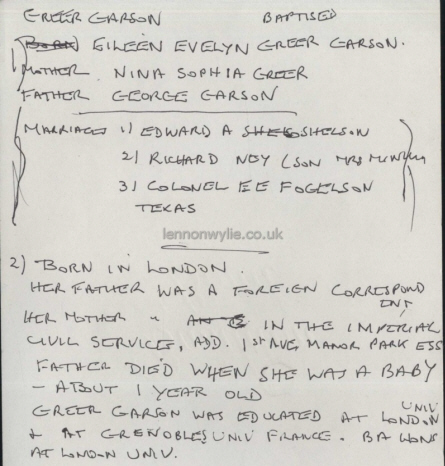 GREER GARSON BAPTISED
BORN EILEEN EVELYN GREER GARSON.
MOTHER NINA SOPHIA GREER
FATHER GEORGE GARSON
MARRIAGES 1) EDWARD A SHELSON
2) RICHARD NEY (SON MRS
3) COLONEL EE FOGELSON
TEXAS
lennonwylie.co.uk
2) BORN IN LONDON.
HER FATHER WAS A FOREIGN CORRESPONDENT
HER MOTHER " IN THE IMPERIAL
CIVIL SERVICE, ADD. 1ST AVE, MANOR PARK ESS
FATHER DIED WHEN SHE WAS A BABY
- ABOUT 1 YEAR OLD
GREER GARSON WAS EDUCATED AT LONDON UNIV
& AT GRENOBLES UNIV FRANCE. BA HONS
AT LONDON UNIV.